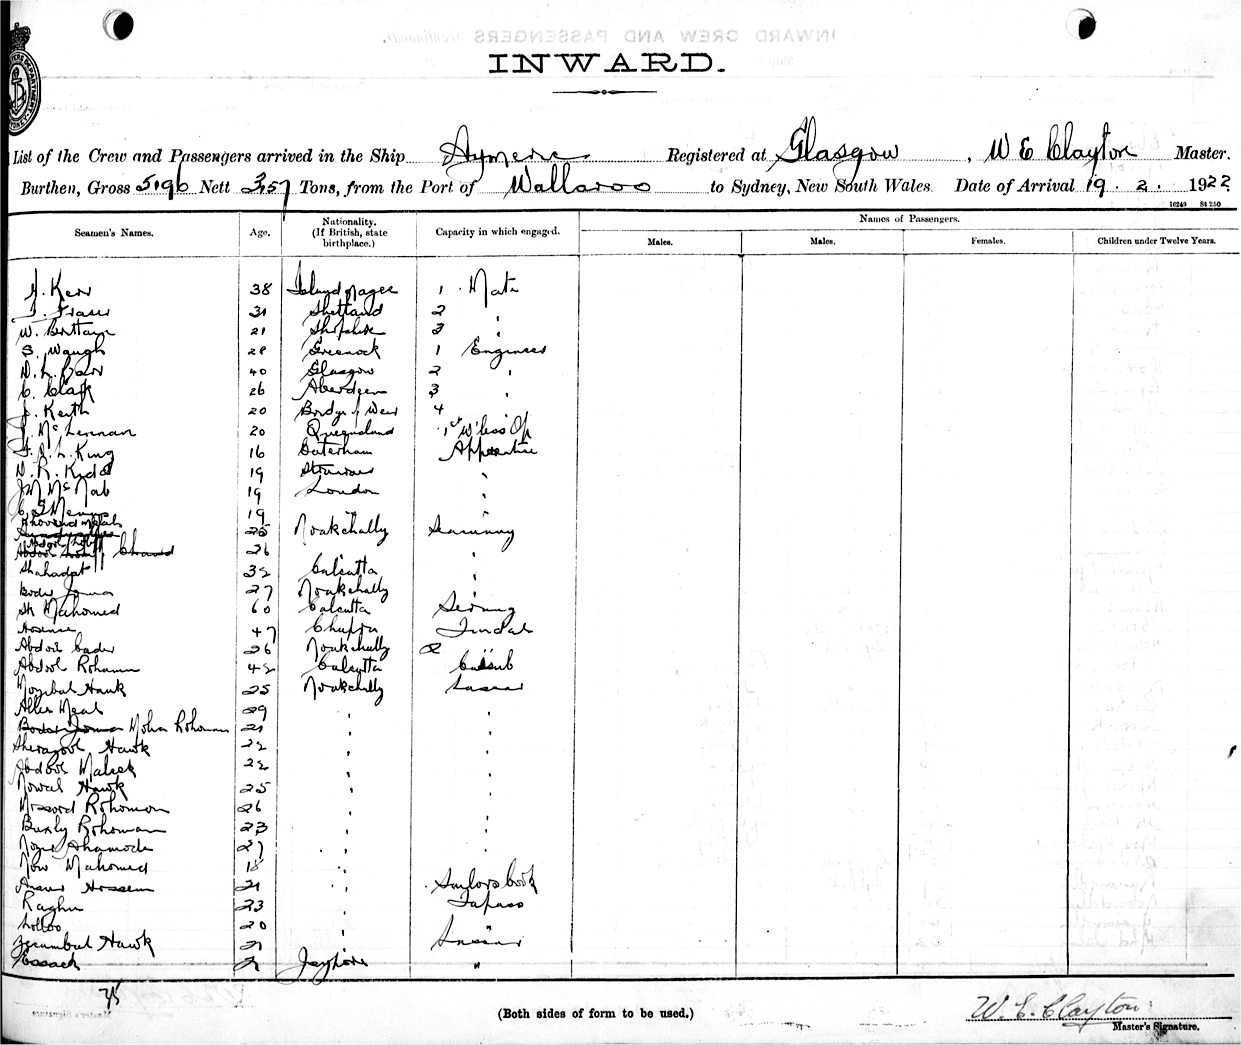 INWARD.
List of the Crew and Passengers arrived in the Ship Aymeric Registered at Glasgow, W E Clayton Master.
Burthen, Gross 5196 Nett Tons, from the Port of Wallaroo to Sydney, New South Wales. Date of Arrival 19 . 2 . 1922
16249 St 250
Seamen's Names. Age. Nationality. (If British, state birthplace.) Capacity in which engaged. Names of Passengers.
Males. Males. Females. Children under Twelve Years.
Kerr 38 Island Magee 1 Mate
Fraser 31 Shetland 2 "
W. Brittain 21 Shropshire 3 "
S. Waugh 28 Greenock 1 Engineer
D. L. Barr 40 Glasgow 2 "
C. Clark 26 Aberdeen 3 "
J. Keith 20 Bridge of Weir 4 "
J. McLennan 20 Queensland 1st W'less Op
King 16 Caterham Apprentice
D. R. Kidd 19 "
J M McNab 19 London "
19 " "
25 Noakchally
26 "
Shahadat 32 Calcutta "
27 Noakchally "
Sk Mahomed 60 Calcutta Serang
47 Chupra Tindal
Abdool Cader 26 Noakchally 2 "
Abdool Rohaman 42 Calcutta Cassab
Mozibal Hawk 25 Noakchally Lascar
Allee Meah 29 " "
Moha Rohoman 21 " "
Sherazool Hawk 22 " "
Abdool Maleek 22 " "
Nowab Hawk 25 " "
Rohomon 26 " "
Buxly Rohoman 23 " "
Ahamode 27 " "
Now Mahomed 18 "
Hossein 21 " Sailors Cook
Raghu 23 " Topass
Lolloo 20 "
Hawk 21 " Lascar
Essack "
35
(Both sides of form to be used.)
W. E. Clayton
Master's Signature.